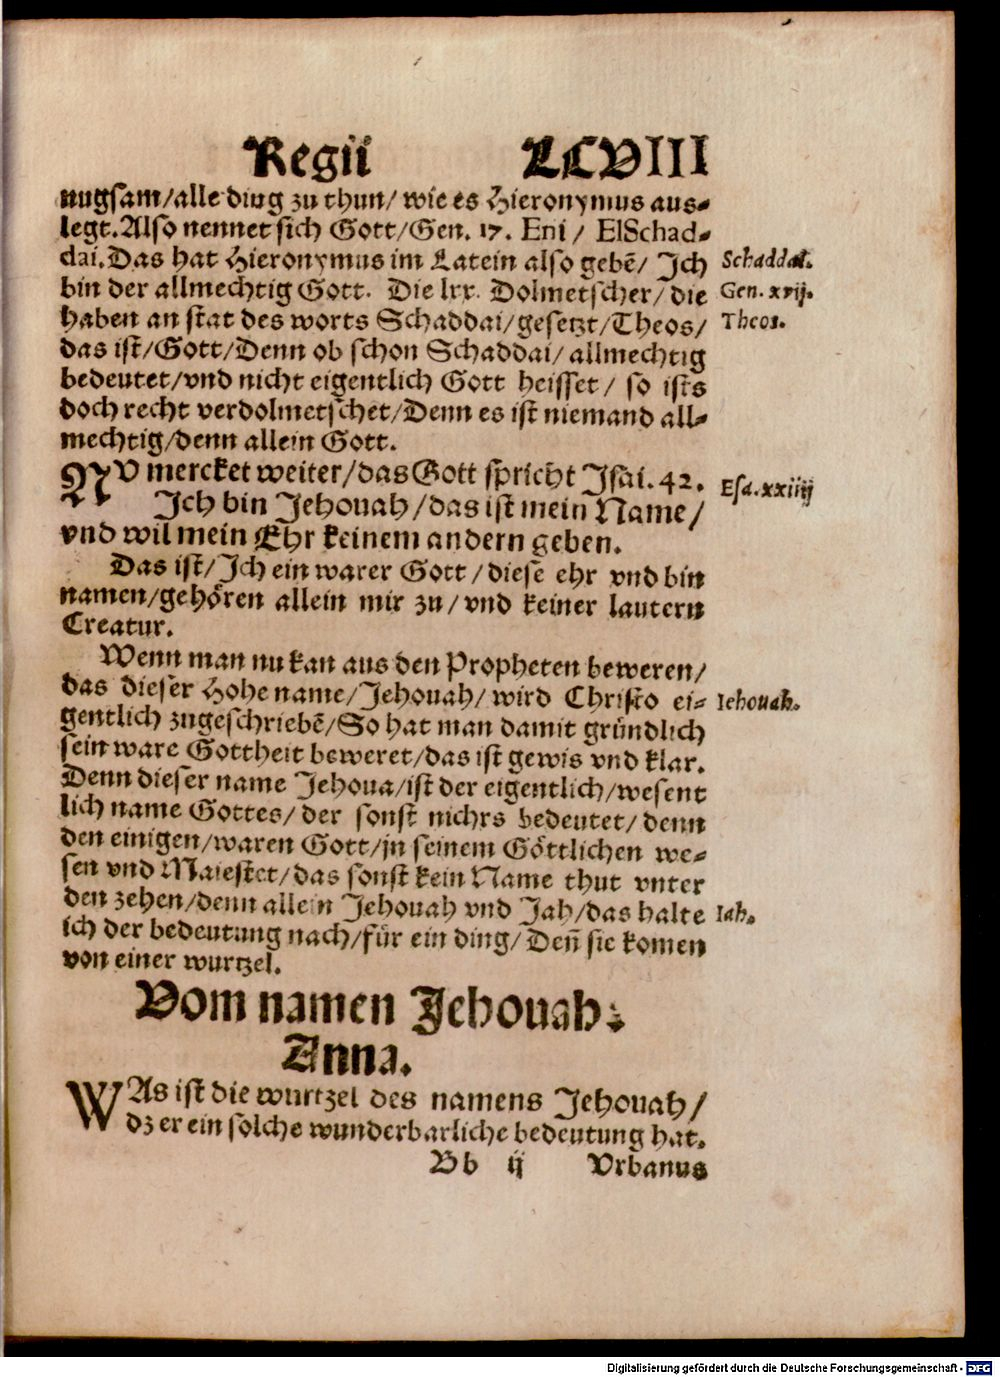 Regii LCVIII
nugsam/alle ding zu thun/ wie es Hieronymus aus-
legt. Also nennet sich Gott/Gen. 17. Eni / ElSchad-
dai. Das hat Hieronymus im Latein also gebē/ Ich
Schaddai.
bin der allmechtig Gott. Die lxx. Dolmetscher/ die
Gen. xvij.
haben an stat des worts Schaddai/gesetzt/Theos/
Theos.
das ist/Gott/Denn ob schon Schaddai/ allmechtig
bedeutet/vnd nicht eigentlich Gott heisset/ so ists
doch recht verdolmetschet/Denn es ist niemand all-
mechtig/denn allein Gott.
NV mercket weiter/das Gott spricht Isai. 42.
Esa. xxiiij
Ich bin Jehouah/das ist mein Name/
vnd wil mein Ehr keinem andern geben.
Das ist/Ich ein warer Gott/diese ehr vnd bin
namen/gehören allein mir zu/vnd keiner lautern
Creatur.
Wenn man nu kan aus den Propheten beweren/
das dieser Hohe name/Jehouah/wird Christo ei-
Iehouah.
gentlich zugeschriebē/So hat man damit gründlich
sein ware Gottheit beweret/das ist gewis vnd klar.
Denn dieser name Jehoua/ist der eigentlich/wesent
lich name Gottes/ der sonst nichrs bedeutet/ denn
den einigen/waren Gott/jn seinem Göttlichen we-
sen vnd Maiestet/das sonst kein Name thut vnter
den zehen/denn allein Jehouah vnd Jah/das halte
Iah.
ich der bedeutung nach/für ein ding/ Deñ sie komen
von einer wurtzel.
Vom namen Jehouah.
Anna.
WAs ist die wurtzel des namens Jehouah/
dz er ein solche wunderbarliche bedeutung hat.
Bb ij Vrbanus
Digitalisierung gefördert durch die Deutsche Forschungsgemeinschaft - DFG